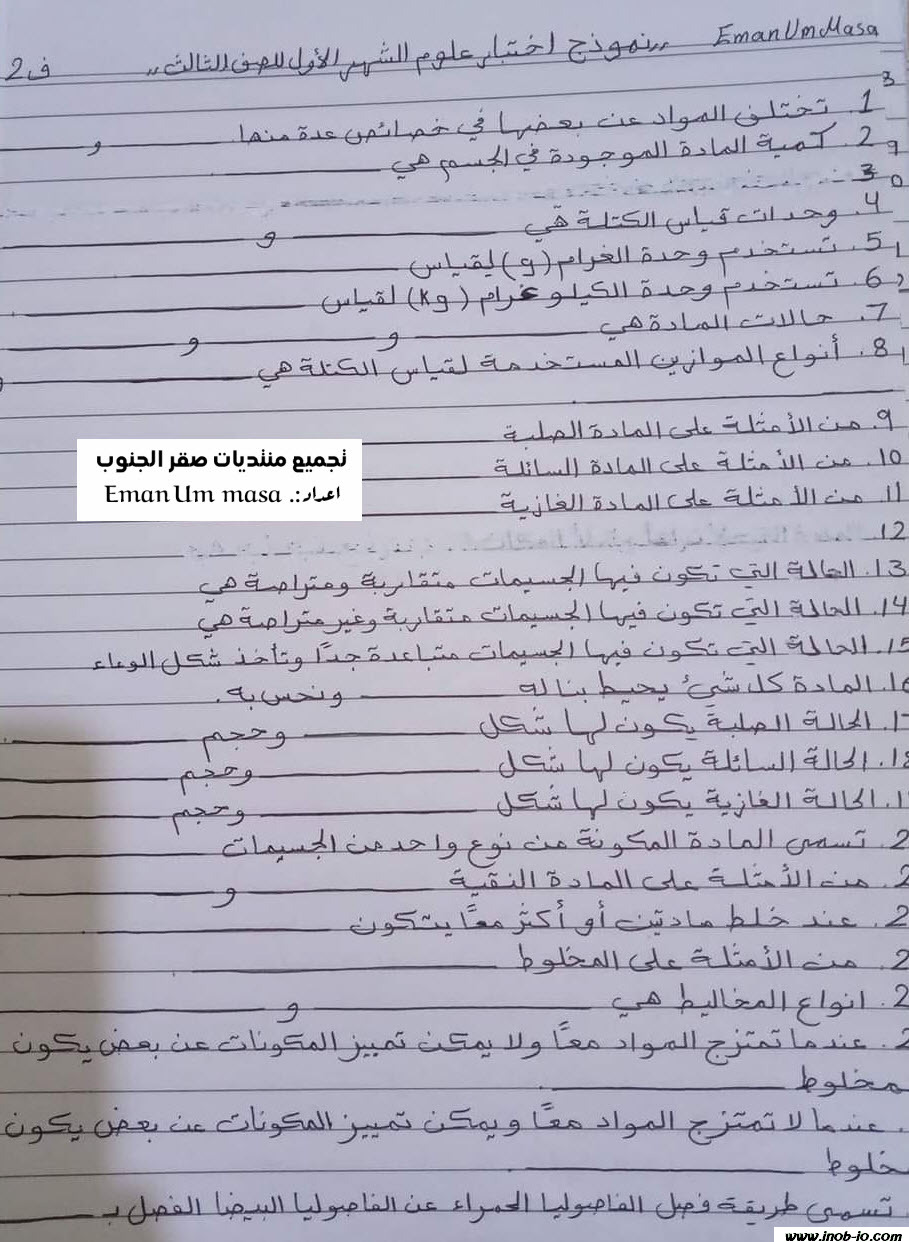 EmanUmMasa ,,نموذج اختبار علوم الشهر الأول للصف الثالث,, ف2
1. تختلف المواد عن بعضها في خصائص عدة منها ______ و ______
2. كمية المادة الموجودة في الجسم هي ______
3.
4. وحدات قياس الكتلة هي ______ و ______
5. تستخدم وحدة الغرام (g) لقياس ______
6. تستخدم وحدة الكيلو غرام (Kg) لقياس ______
7. حالات المادة هي ______ و ______ و ______
8. أنواع الموازين المستخدمة لقياس الكتلة هي ______ و
______
9. من الأمثلة على المادة الصلبة ______
10. من الأمثلة على المادة السائلة ______
11. من الأمثلة على المادة الغازية ______
تجميع منتديات صقر الجنوب
اعداد:. Eman Um masa
12.
13. الحالة التي تكون فيها الجسيمات متقاربة ومتراصة هي
14. الحالة التي تكون فيها الجسيمات متقاربة وغير متراصة هي
15. الحالة التي تكون فيها الجسيمات متباعدة جدًا وتأخذ شكل الوعاء
16. المادة كل شيء يحيط بنا له ______ ونحس به.
17. الحالة الصلبة يكون لها شكل ______ وحجم ______.
18. الحالة السائلة يكون لها شكل ______ وحجم ______
1. الحالة الغازية يكون لها شكل ______ وحجم ______
2. تسمى المادة المكونة من نوع واحد من الجسيمات ______
2. من الأمثلة على المادة النقية ______ و ______
2. عند خلط مادتين أو أكثر معًا يتكون ______
2. من الأمثلة على المخلوط ______
2. انواع المخاليط هي ______ و ______
2. عندما تمتزج المواد معًا ولا يمكن تمييز المكونات عن بعض يكون
مخلوط ______
. عندما لا تمتزج المواد معًا ويمكن تمييز المكونات عن بعض يكون
خلوط ______
. تسمى طريقة فصل الفاصوليا الحمراء عن الفاصوليا البيضا الفصل بـ ______
www.jnob-jo.com